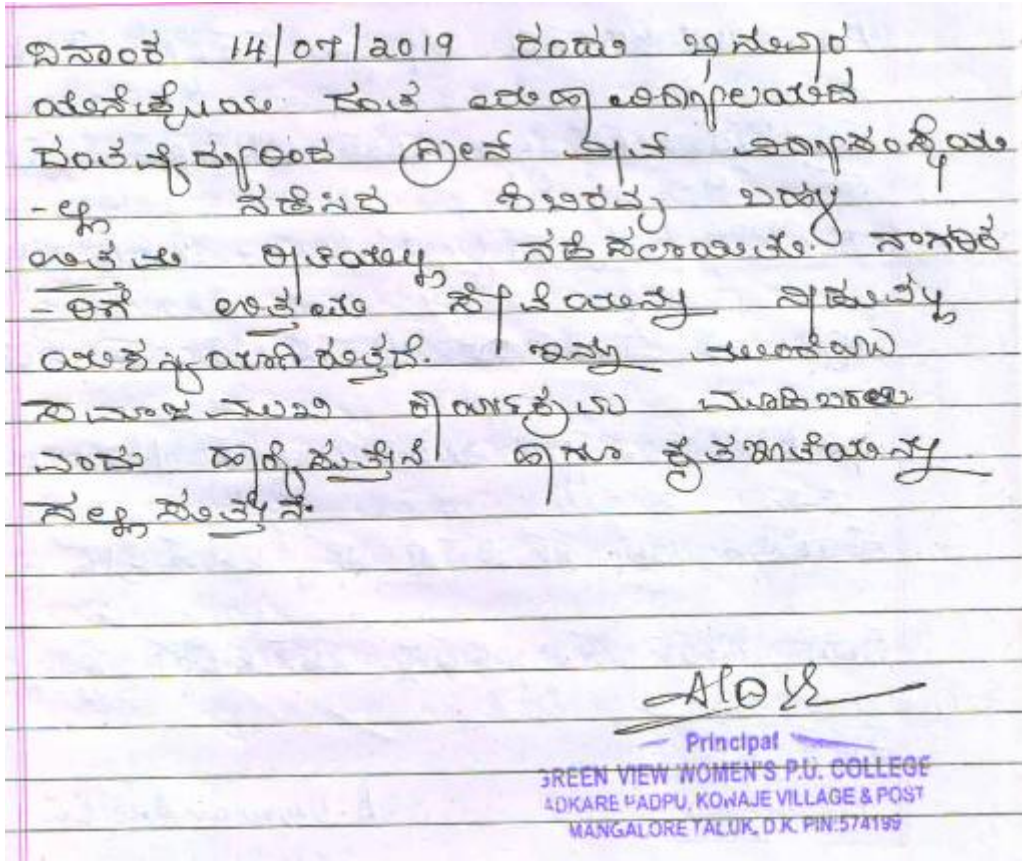 ದಿನಾಂಕ 14/07/2019 ರಂದು ಭಾನುವಾರ
ಯೆನೆಪೋಯ ದಂತ ಮಹಾವಿದ್ಯಾಲಯದ
ದಂತವೈದ್ಯರಿಂದ ಗ್ರೀನ್ ವ್ಯೂ ವಿದ್ಯಾಸಂಸ್ಥೆಯ
-ಲ್ಲಿ ನಡೆಸಿದ ಶಿಬಿರವು ಬಹಳ
ಉತ್ತಮ ರೀತಿಯಲ್ಲಿ ನಡೆಸಲಾಯಿತು. ನಾಗರಿಕ
-ರಿಗೆ ಉತ್ತಮ ಸೇವೆಯನ್ನು ನೀಡುವಲ್ಲಿ
ಯಶಸ್ವಿಯಾಗಿರುತ್ತದೆ. ಇನ್ನು ಮುಂದೆಯೂ
ಸಮಾಜಮುಖಿ ಕಾರ್ಯಕ್ರಮ ಮೂಡಿಬರಲು
ಎಂದು ಹಾರೈಸುತ್ತೇನೆ ಹಾಗೂ ಕೃತಜ್ಞತೆಯನ್ನು
ಸಲ್ಲಿಸುತ್ತೇನೆ.
Principal
GREEN VIEW WOMEN'S P.U. COLLEGE
ADKARE PADPU, KONAJE VILLAGE & POST
MANGALORE TALUK, D.K. PIN:574199